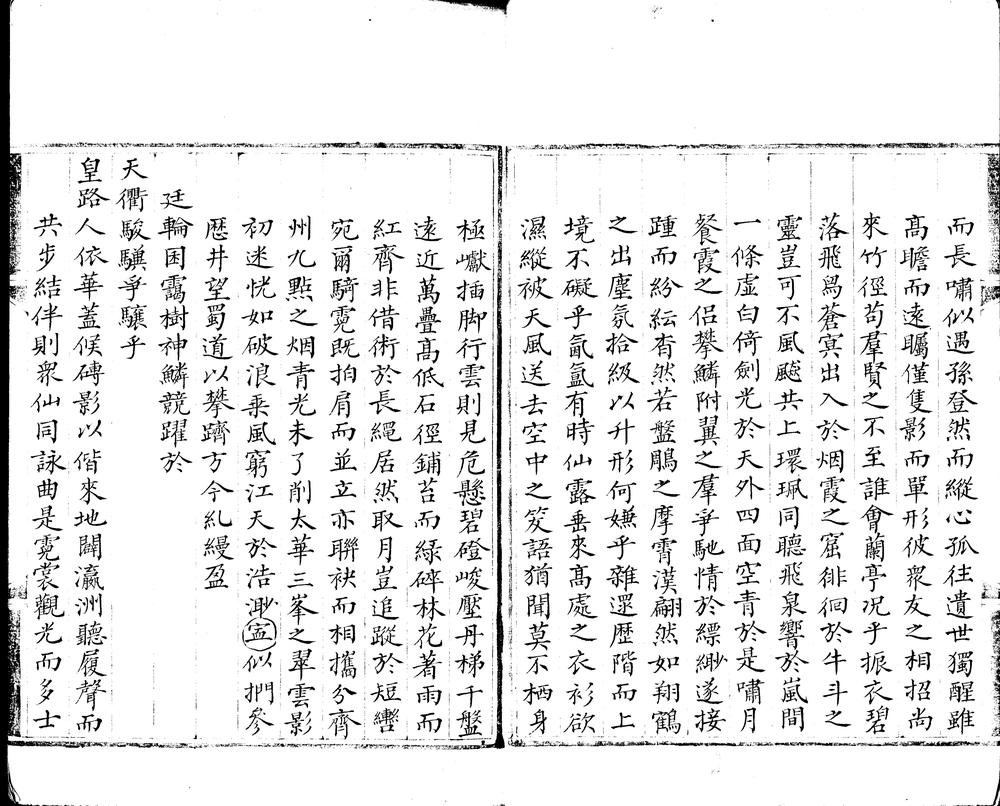 而長嘯似遇孫登然而縱心孤往遺世獨醒雖
高瞻而遠矚僅隻影而單形彼衆友之相招尚
來竹徑苟羣賢之不至誰會蘭亭况乎振衣碧
落飛舃蒼冥出入於烟霞之窟徘徊於牛斗之
靈豈可不風飈共上環珮同聽飛泉響於嵐間
一條虚白倚劍光於天外四面空青於是嘯月
餐霞之侣攀鱗附翼之羣爭馳情於縹緲遂接
踵而紛紜杳然若盤鵰之摩霄漢翩然如翔鶴
之出塵氛拾級以升形何嫌乎雜遝歴階而上
境不礙乎氤氲有時仙露垂來高處之衣衫欲
濕縱被天風送去空中之笑語猶聞莫不栖身
極巘插脚行雲則見危懸碧磴峻壓丹梯千盤
遠近萬疊高低石徑鋪苔而緑碎林花著雨而
紅齊非借術於長繩居然取月豈追蹤於短轡
宛爾騎霓既拍肩而並立亦聯袂而相攜分齊
州九㸃之烟青光未了削太華三峯之翠雲影
初迷恍如破浪乘風窮江天於浩渺寍似捫參
歴井望蜀道以攀躋方今糺縵盈
廷輪囷靄樹神鱗競躍於
天衢駿驥爭驤乎
皇路人依華蓋候磚影以偕來地闢瀛洲聽履聲而
共步結伴則衆仙同詠曲是霓裳觀光而多士